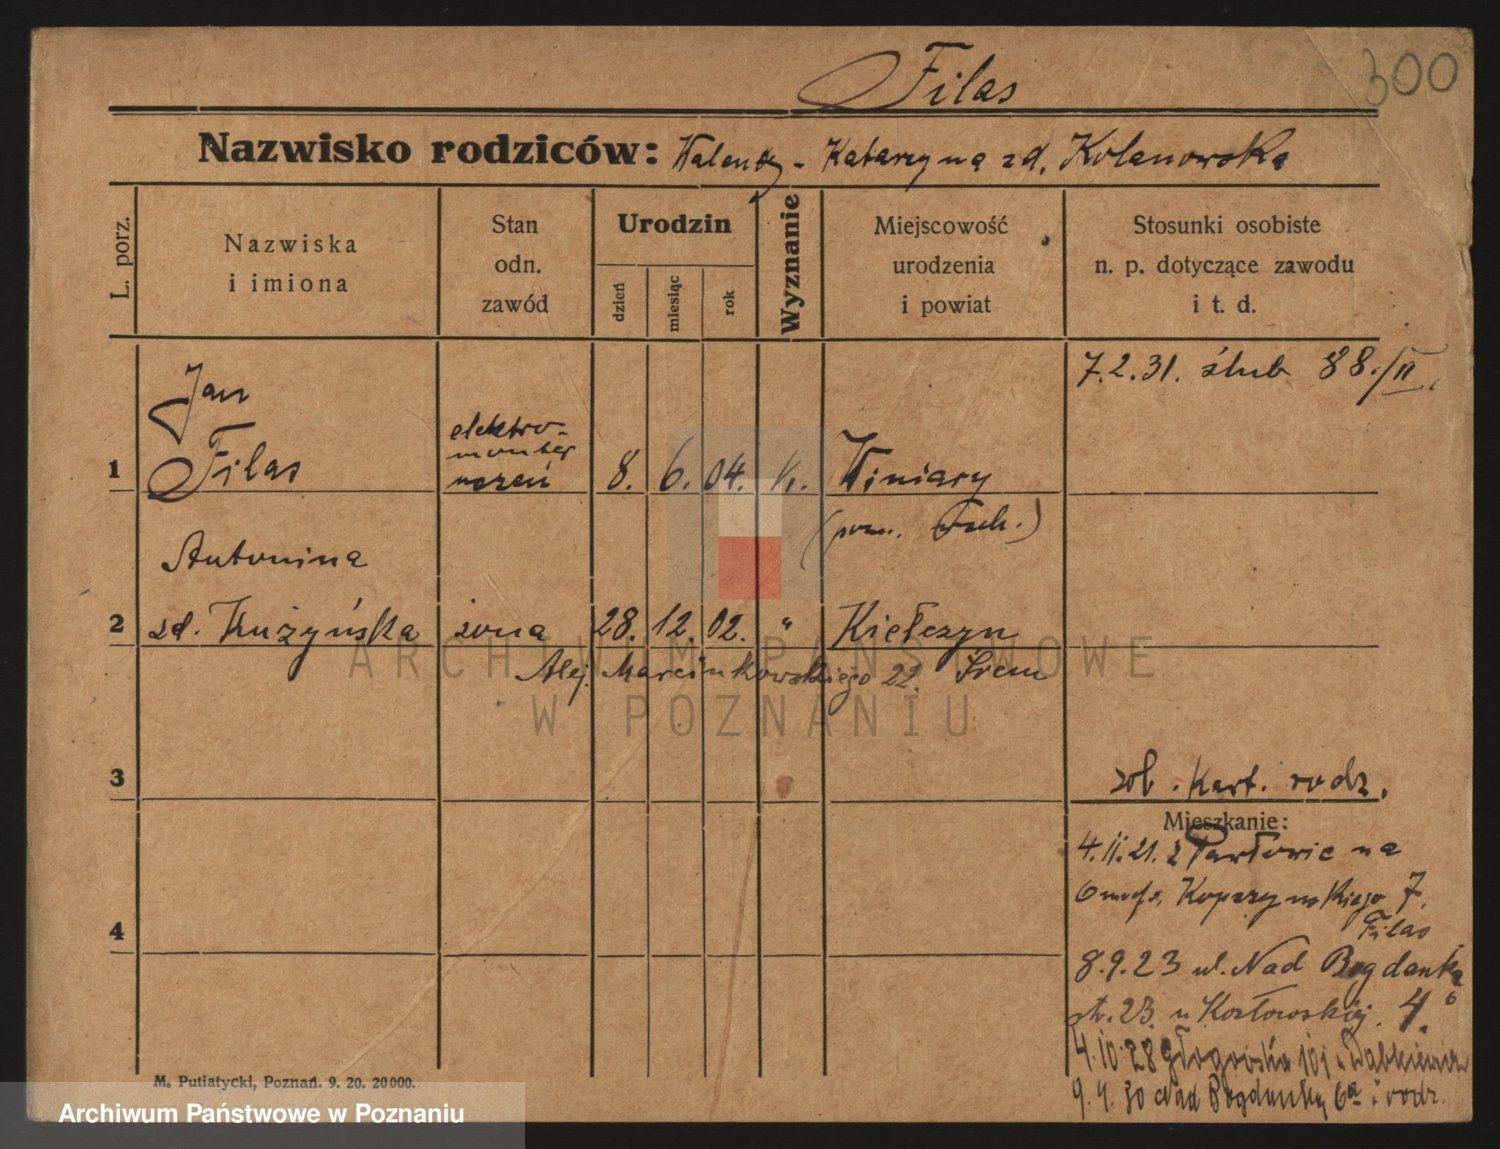 Filas
300
Nazwisko rodziców: Walenty - Katarzyna zd. Kolanowska
L. porz.
Nazwiska
i imiona
Stan
odn.
zawód
Urodzin
dzień
miesiąc
rok
Wyznanie
Miejscowość
urodzenia
i powiat
Stosunki osobiste
n. p. dotyczące zawodu
i t. d.
7.2.31. ślub 88./II.
Jan
1 Filas
elektro-
monter
uczeń
8. 6. 04. k. Winiary
(pow.
Antonina
2 zd. Kużyńska żona 28. 12. 02. " Kiełczyn
Alej. Marcinkowskiego 22. Śrem
ARCHIWUM PAŃSTWOWE
W POZNANIU
3
zob. Kart. rodz.
Mieszkanie:
4.11.21. z Pawłowic na
Kopczyńskiego 7.
4
Filas
8.9.23 ul. Nad Bogdanką
str. 23. u Kozłowskiej. 4.
4.10.28 Głogowska 101 u
9.4.30 Nad Bogdanką 6a i rodz.
M. Putiatycki, Poznań. 9. 20. 20000.
Archiwum Państwowe w Poznaniu